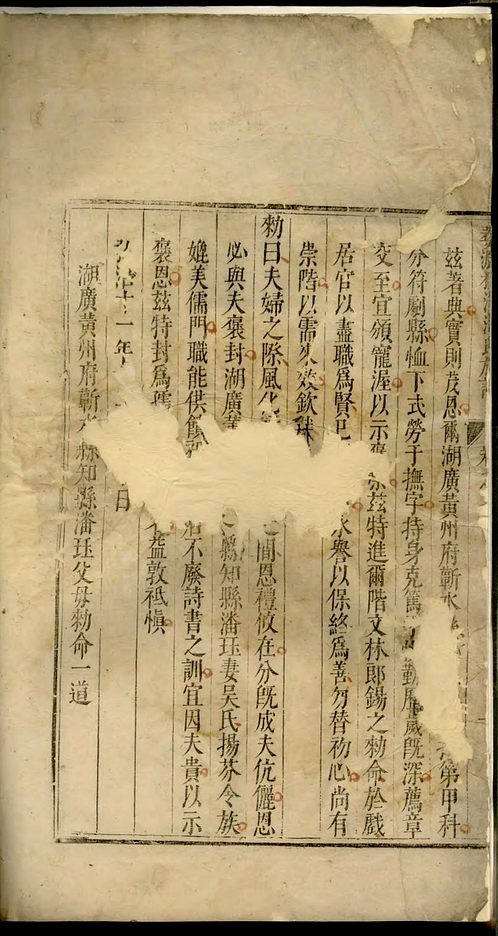 茲著典實則茂恩爾湖廣黃州府蘄水第甲科
分符劇縣恤下式勞于撫字持身克篤勤歷歲既深薦章
交至宜頒寵渥以示茲特進爾階文林郎錫之勅命於戲
居官以盡職為賢永譽以保終為善勿替初心尚有
崇階以需來效欽
勅曰夫婦之際風間恩禮攸在分既成夫伉儷恩
必與夫褒封湖廣縣知縣潘珏妻吳氏揚芬令族
媲美儒門職能供不廢詩書之訓宜因夫貴以示
褒恩茲特封為孺益敦祗慎
十一年日
湖廣黃州府蘄水縣知縣潘珏父母勅命一道